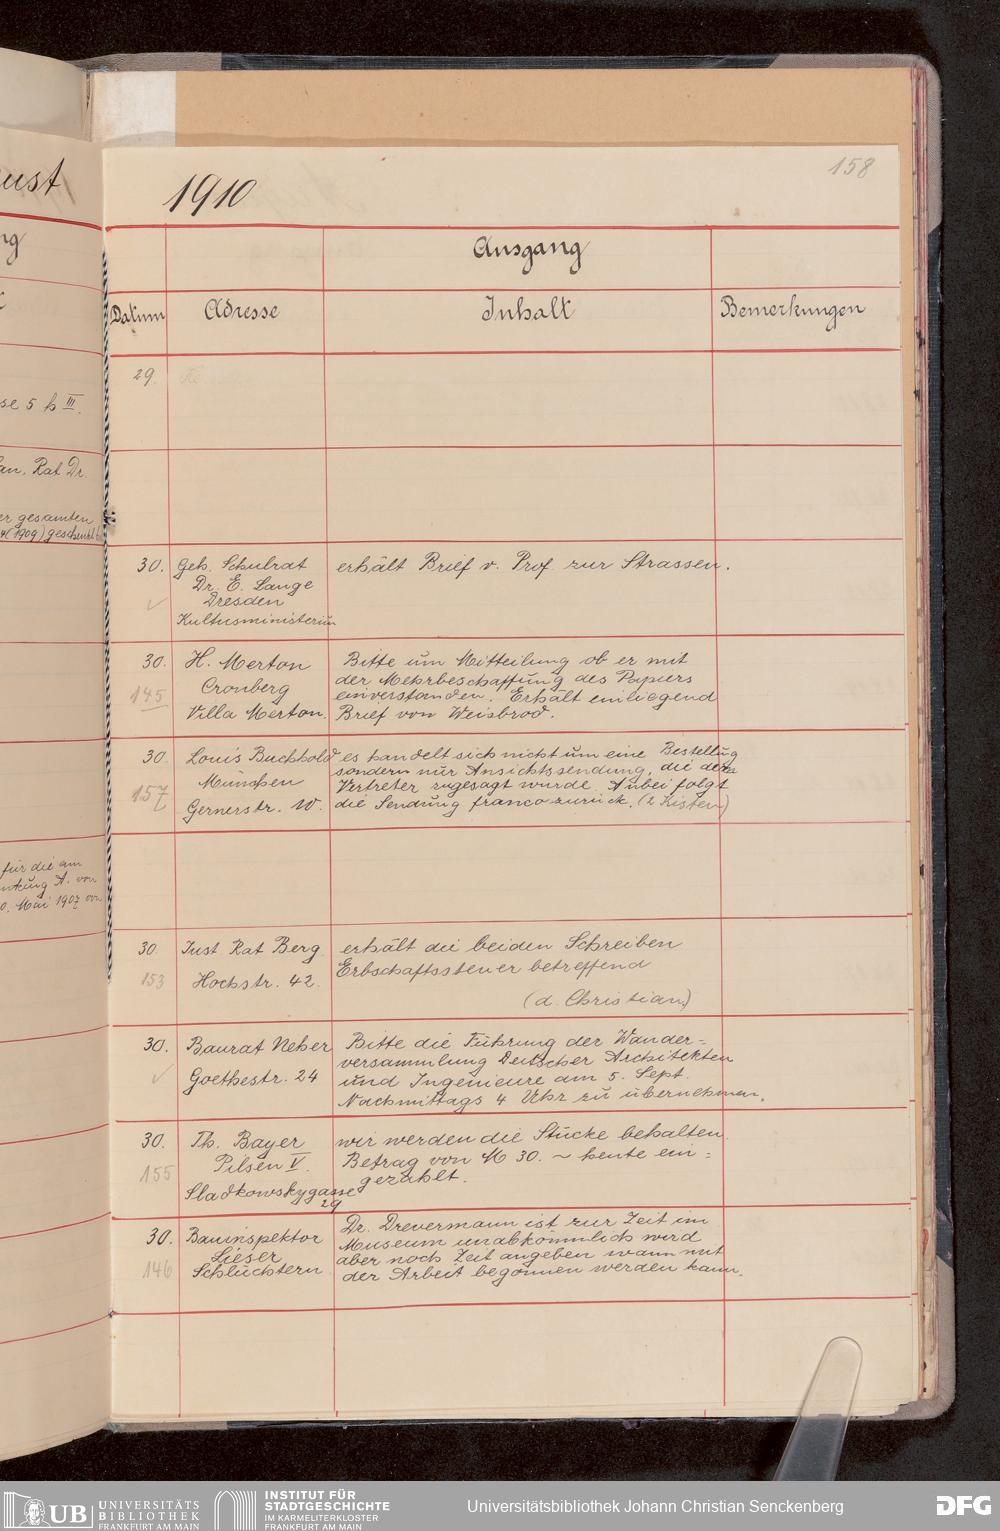 ust
1910
158
ng
Ausgang
Datum
Adresse
Inhalt
Bemerkungen
29.
se 5 h III.
an. Rat Dr.
er gesamten
(1909) geschenkt
30. Geh. Schulrat
Dr. E. Lange
Dresden
Kultusministerium
erhält Brief v. Prof. zur Strassen.
30.
145
H. Merton
Cronberg
Villa Merton.
Bitte um Mitteilung ob er mit
der Mehrbeschaffung des Papiers
einverstanden. Erhält einliegend
Brief von Weisbrod.
30
157
Louis Buchhold
München
Gernerstr. W.
es handelt sich nicht um eine Bestellung
sondern nur Ansichtssendung, die dem
Vertreter zugesagt wurde. Anbei folgt
die Sendung franco zurück. (2 Kisten)
für die am
nkung A. von
0. Mai 1907 von
30
153
Just Rat Berg
Hochstr. 42.
erhält die beiden Schreiben
Erbschaftssteuer betreffend
(d. Christian)
30.
Baurat Neher
Goethestr. 24
Bitte die Führung der Wander=
versammlung Deutscher Architekten
und Ingenieure am 5. Sept.
Nachmittags 4 Uhr zu übernehmen.
30.
155
Th. Bayer
Pilsen V.
Sladkowskygasse
29
wir werden die Stücke behalten
Betrag von M 30. ~ heute ein=
gezahlt.
30.
146
Bauinspektor
Lieser
Schlüchtern
Dr. Drevermann ist zur Zeit im
Museum unabkömmlich wird
aber noch Zeit angeben wann mit
der Arbeit begonnen werden kann.
UB
UNIVERSITÄTS
BIBLIOTHEK
FRANKFURT AM MAIN
INSTITUT FÜR
STADTGESCHICHTE
IM KARMELITERKLOSTER
FRANKFURT AM MAIN
Universitätsbibliothek Johann Christian Senckenberg
DFG